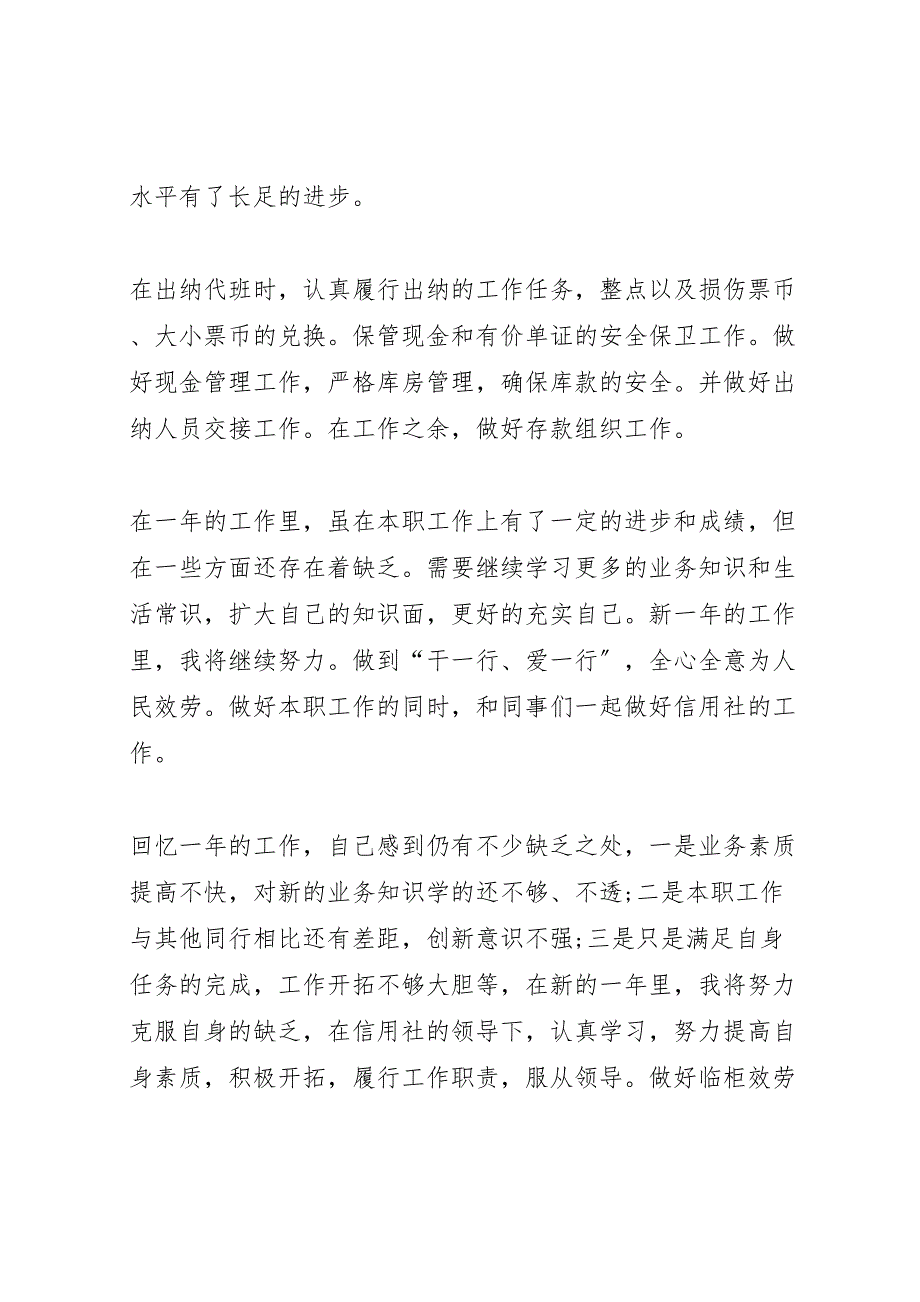 水平有了长足的进步。
在出纳代班时，认真履行出纳的工作任务，整点以及损伤票币
、大小票币的兑换。保管现金和有价单证的安全保卫工作。做
好现金管理工作，严格库房管理，确保库款的安全。并做好出
纳人员交接工作。在工作之余，做好存款组织工作。
在一年的工作里，虽在本职工作上有了一定的进步和成绩，但
在一些方面还存在着缺乏。需要继续学习更多的业务知识和生
活常识，扩大自己的知识面，更好的充实自己。新一年的工作
里，我将继续努力。做到“干一行、爱一行〞，全心全意为人
民效劳。做好本职工作的同时，和同事们一起做好信用社的工
作。
回忆一年的工作，自己感到仍有不少缺乏之处，一是业务素质
提高不快，对新的业务知识学的还不够、不透;二是本职工作
与其他同行相比还有差距，创新意识不强;三是只是满足自身
任务的完成，工作开拓不够大胆等，在新的一年里，我将努力
克服自身的缺乏，在信用社的领导下，认真学习，努力提高自
身素质，积极开拓，履行工作职责，服从领导。做好临柜效劳